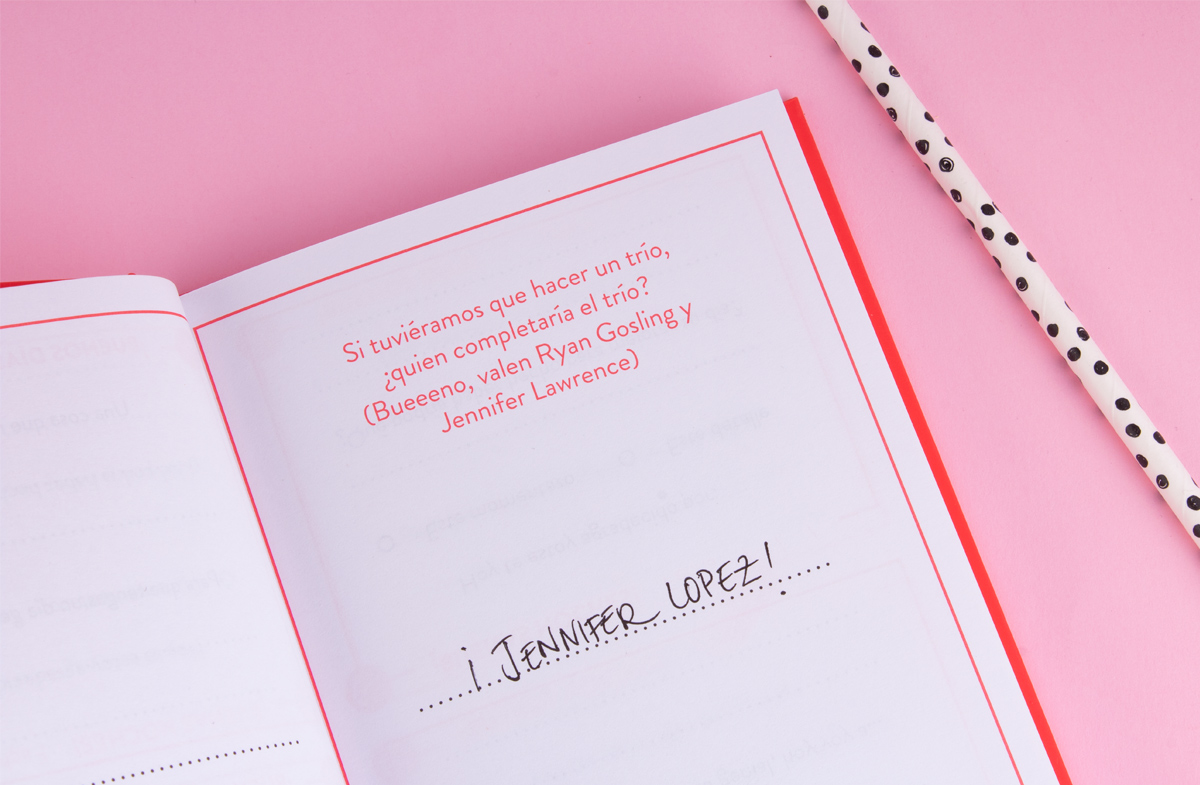 Si tuviéramos que hacer un trío,
¿quien completaría el trío?
(Bueeeno, valen Ryan Gosling y
Jennifer Lawrence)
¡ JENNIFER LOPEZ!